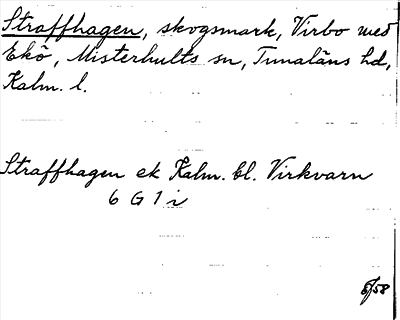 Straffhagen, skogsmark, Virbo med
Ekö, Misterhults sn, Tunaläns hd,
Kalm. l.
Straffhagen ek Kalm. bl. Virkvarn
6 G 1 i
5/58